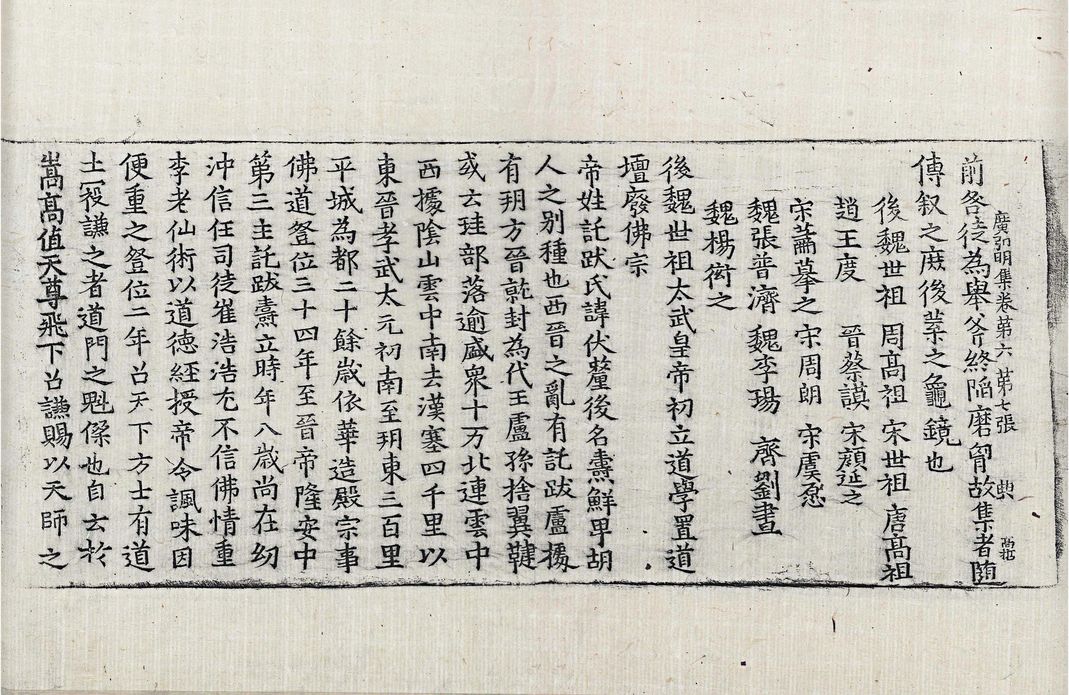 廣弘明集卷第六 第七張 典
前咎從為舉斧終陷磨䏚故集者随
傳叙之庶後葉之龜鏡也
後魏世祖 周髙祖 宋世祖 唐髙祖
趙王度 晉蔡謨 宋顔延之
宋蕭摹之 宋周朗 宋虞愿
魏張普濟 魏李瑒 齊劉晝
魏楊衒之
後魏世祖太武皇帝初立道學置道
壇廢佛宗
帝姓託跋氏諱伏釐後名燾鮮卑胡
人之别種也西晉之亂有託跋盧㩀
有朔方晉就封為代王盧孫捨翼鞬
或云珪部落逾盛衆十万北連雲中
西㩀隂山雲中南去漢塞四千里以
東晉孝武太元初南至朔東三百里
平城為都二十餘歲依華造殿宗事
佛道登位三十四年至晉帝隆安中
第三主託跋燾立時年八歲尚在幼
沖信任司徒崔浩浩尤不信佛情重
李老仙術以道德經授帝令諷味因
便重之登位二年召天下方士有道
士寇謙之者道門之魁傑也自云於
嵩髙值天尊飛下召謙賜以天師之